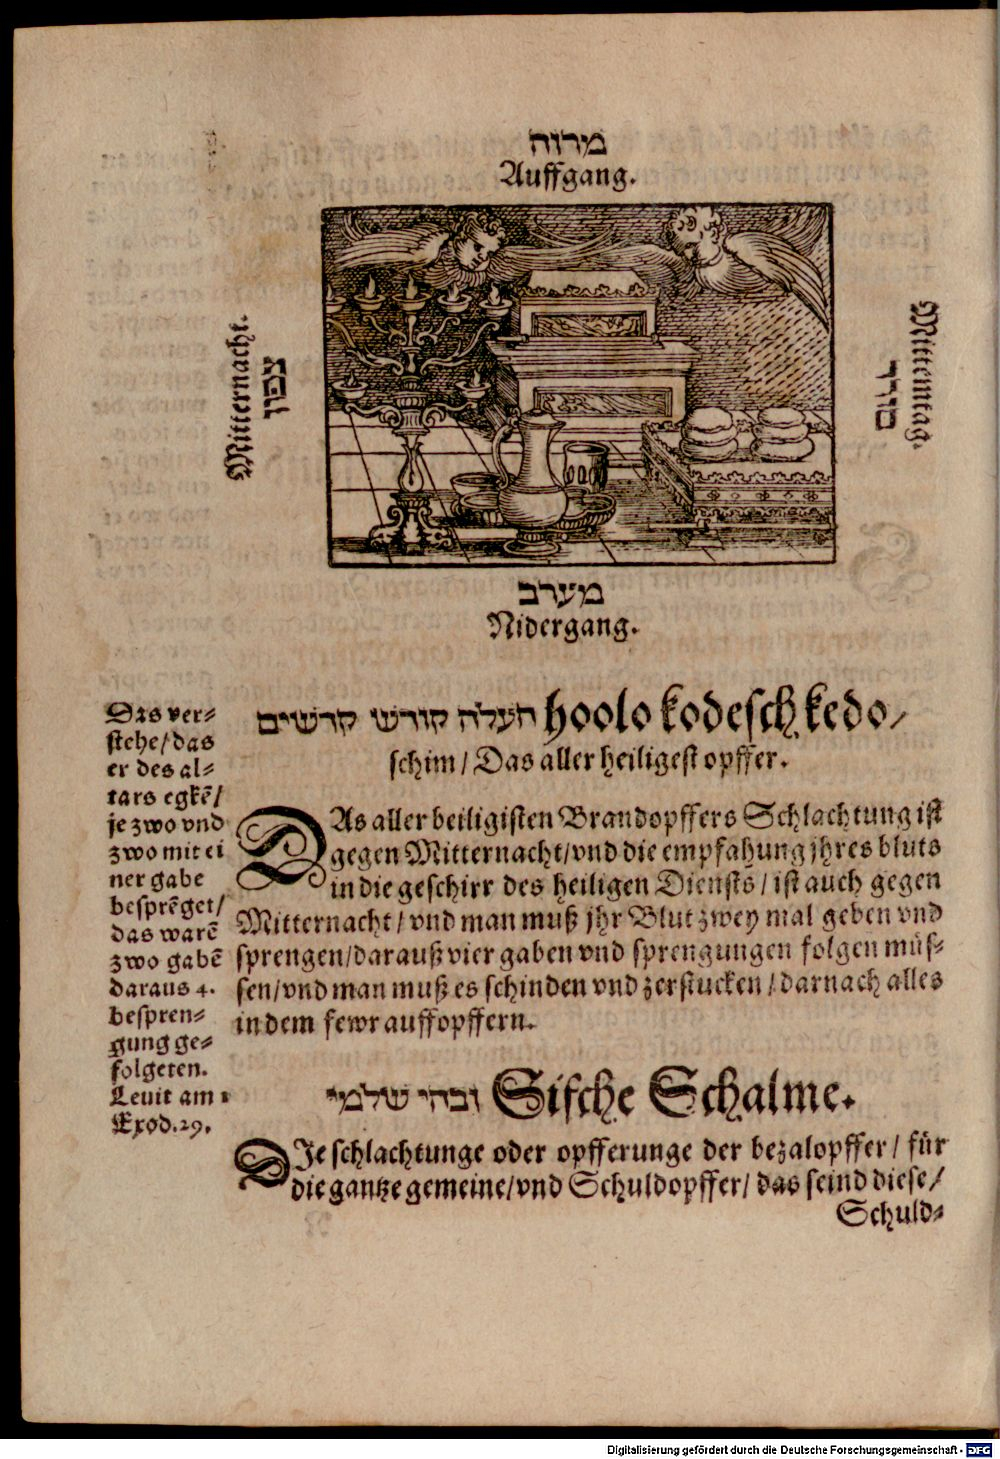 מזרח
Auffgang.
Mitternacht.
צפון
Mittemtag.
דרום
מערב
Nidergang.
העלה קודש קדשים hoolo kodesch kedo/
schim/ Das aller heiligest opffer.
DAs aller heiligisten Brandopffers Schlachtung ist
gegen Mitternacht/vnd die empfahung jhres bluts
in die geschirr des heiligen Diensts/ ist auch gegen
Mitternacht/ vnd man muß jhr Blut zwey mal geben vnd
sprengen/darauß vier gaben vnd sprengungen folgen müs-
sen/vnd man muß es schinden vnd zerstucken/darnach alles
in dem fewr auffopffern.
Das ver-
stehe/das
er des al-
tars egkē/
je zwo vnd
zwo mit ei
ner gabe
besprēget/
das warē
zwo gabē
daraus 4.
bespren-
gung ge-
folgeten.
Leuit am 1
Exod.29.
זבחי שלמי Sifche Schalme.
DIe schlachtunge oder opfferunge der bezalopffer/ für
die gantze gemeine/vnd Schuldopffer/ das seind diese/
Schuld-
Digitalisierung gefördert durch die Deutsche Forschungsgemeinschaft - DFG